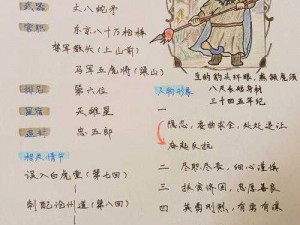 武器 丈八蛇矛
官职 东京八十万禁军
教头(上山前)
马军五虎将(梁山)
生的豹头环眼，燕颔虎须
八尺长短身材
三十四五年纪
排名 第六位
人物形象
星宿 天雄星
一 隐忍，委曲求全，处处退让
奋起反抗
追封 忠武郎
相关情节
二 尽职尽责，细心谨慎
误入白虎堂(第七回)
三 扶危济困，忠厚善良
刺配沧州道(第八回)
四 英勇刚烈，有勇有谋